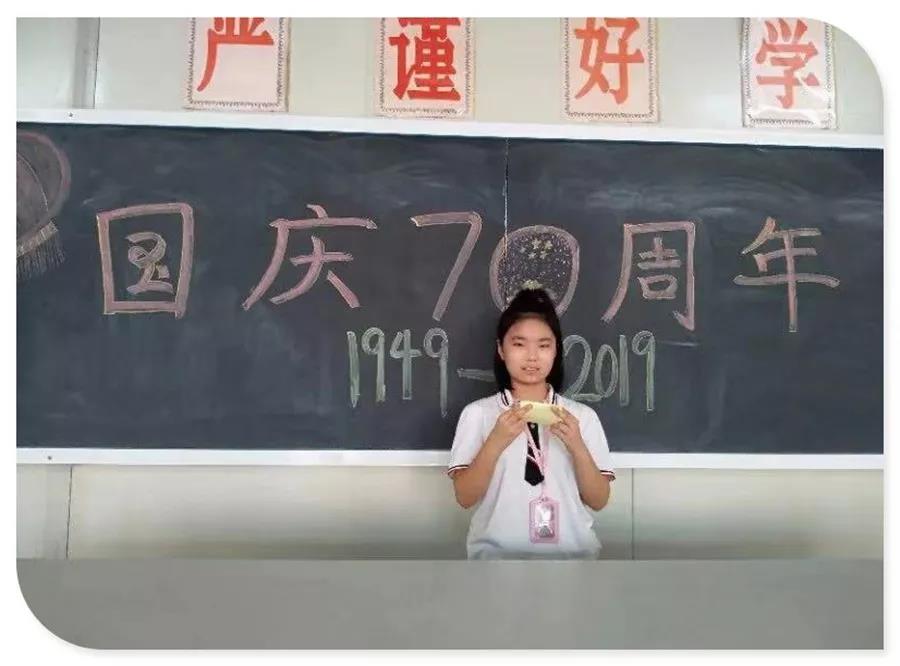 严谨好学
国庆70周年
1949-2019